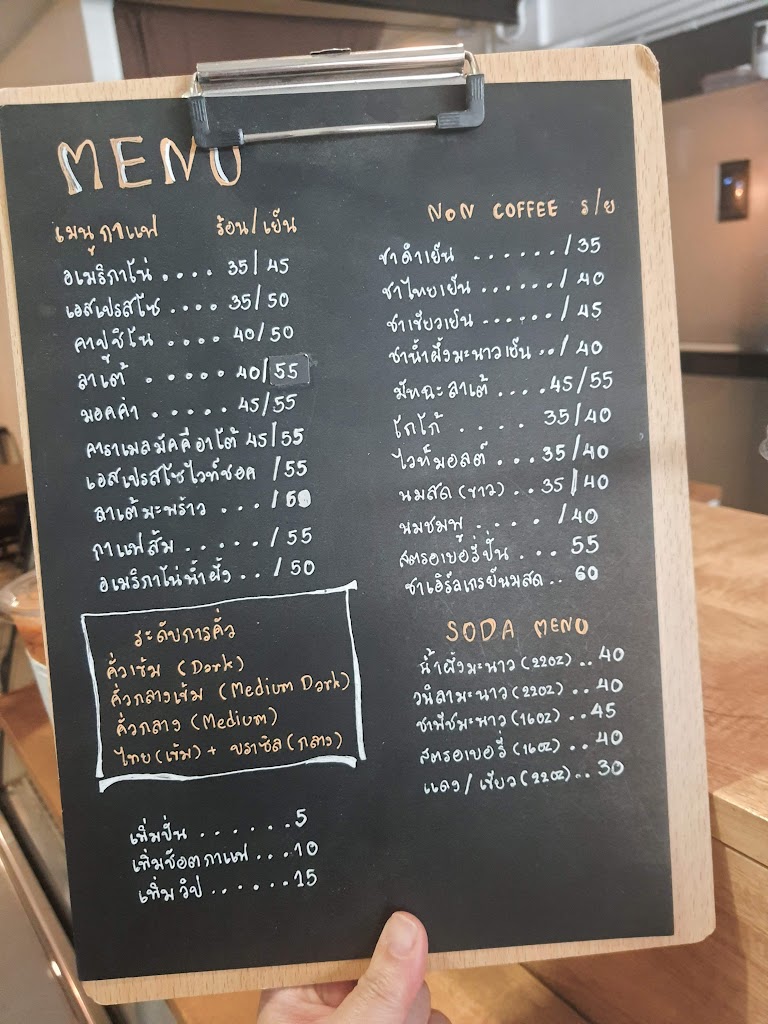 MENU
เมนูกาแฟ ร้อน/เย็น
อเมริกาโน่ .... 35/45
เอสเปรสโซ่ .... 35/50
คาปูชิโน .... 40/50
ลาเต้ ..... 40/55
มอคค่า ..... 45/55
คาราเมลมัคคีอาโต้ 45/55
เอสเปรสโซไวท์ชอค /55
ลาเต้มะพร้าว ... /60
กาแฟส้ม ..... /55
อเมริกาโน่น้ำผึ้ง .. /50
ระดับการคั่ว
คั่วเข้ม (Dark)
คั่วกลางเข้ม (Medium Dark)
คั่วกลาง (Medium)
ไทย(เข้ม) + บราซิล(กลาง)
เพิ่มปั่น ....... 5
เพิ่มช็อตกาแฟ ... 10
เพิ่มวิป ...... 15
NON COFFEE ร/ย
ชาดำเย็น ...... /35
ชาไทยเย็น ...... /40
ชาเขียวเย็น ...... /45
ชาน้ำผึ้งมะนาวเย็น .. /40
มัทฉะลาเต้ ... 45/55
โกโก้ .... 35/40
ไวท์มอลต์ ... 35/40
นมสด(ขาว) .. 35/40
นมชมพู .... /40
สตรอเบอรี่ปั่น ... 55
ชาเอิร์ลเกรย์นมสด .. 60
SODA MENU
น้ำผึ้งมะนาว(22oz) .. 40
วนิลามะนาว(22oz) .. 40
ชาพีชมะนาว(16oz) .. 45
สตรอเบอรี่(16oz) .. 40
แดง/เขียว(22oz) .. 30